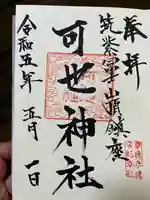 奉拝
筑紫富士山頂鎮座
可也神社
令和五年五月一日